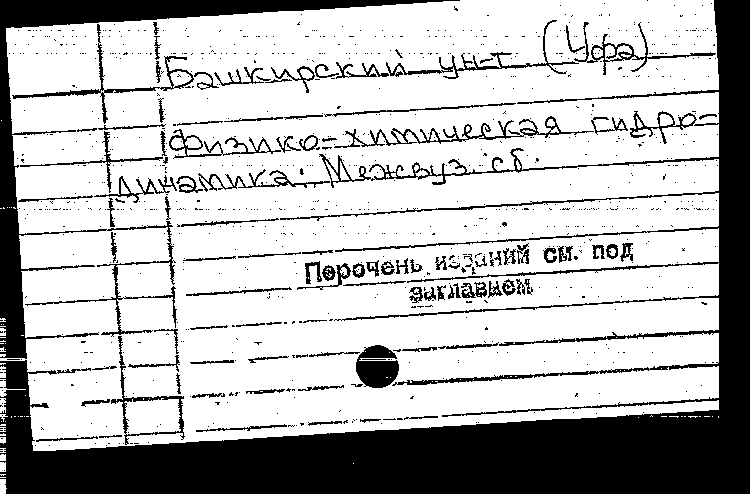 Башкирский ун-т (Уфа)
Физико-химическая гидро-
динамика: Межвуз. сб.
Перечень изданий см. под
заглавием